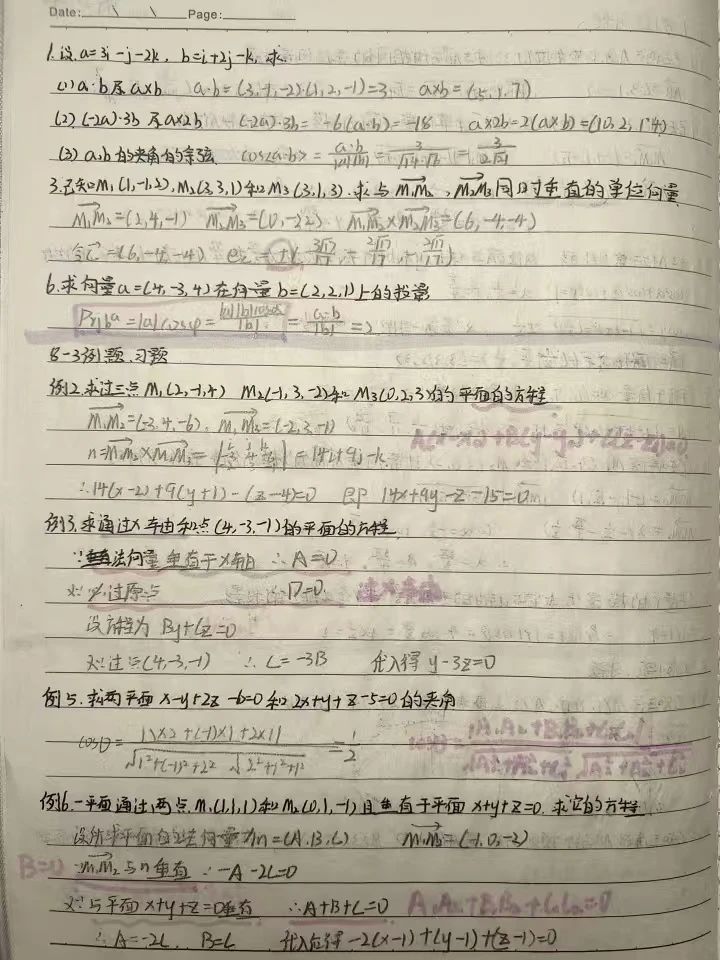 Date: Page:
1.设 a=3i-j-2k, b=i+2j-k, 求
(1) a·b 及 a×b a·b=(3,-1,-2)·(1,2,-1)=3 a×b=(5,1,7)
(2) (-2a)·3b 及 a×2b (-2a)·3b=-6(a·b)=-18 a×2b=2(a×b)=(10,2,14)
(3) a,b的夹角的余弦 cos<a·b>=a·b/|a||b|=3/√14·√6=3/2√21
3.已知M₁(1,-1,2), M₂(3,3,1)和M₃(3,1,3).求与M₁M₂,M₂M₃同时垂直的单位向量
M₁M₂=(2,4,-1) M₂M₃=(0,-2,2) M₁M₂×M₂M₃=(6,-4,-4)
令c=(6,-4,-4)
6.求向量a=(4,-3,4)在向量b=(2,2,1)上的投影
Prj b a=|a|cosφ=|a||b|cosφ/|b|=a·b/|b|=2
8-3例题、习题
例2.求过三点M₁(2,-1,4) M₂(-1,3,-2)和M₃(0,2,3)的平面的方程
M₁M₂=(-3,4,-6), M₁M₃=(-2,3,-1) A(x-x₀)+B(y-y₀)+C(z-z₀)=0
n=M₁M₂×M₁M₃=|i j k -3 4 -6 -2 3 -1|=14i+9j-k
∴14(x-2)+9(y+1)-(z-4)=0 即 14x+9y-z-15=0
例3.求通过x轴和点(4,-3,-1)的平面的方程
∵法向量垂直于x轴 ∴A=0
又∵过原点 ∴D=0
设方程为 By+Cz=0
又∵过点(4,-3,-1) ∴C=-3B 代入得 y-3z=0
例5.求两平面 x-y+2z-6=0和2x+y+z-5=0的夹角
cosθ=|1×2+(-1)×1+2×1|/√1²+(-1)²+2² √2²+1²+1²=1/2 cosθ=|A₁A₂+B₁B₂+C₁C₂|/√A₁²+B₁²+C₁² √A₂²+B₂²+C₂²
例6.一平面通过两点M₁(1,1,1)和M₂(0,1,-1)且垂直于平面x+y+z=0.求它的方程
设所求平面的法向量为n=(A,B,C) M₁M₂=(-1,0,-2)
B=0 ∵M₁M₂与n垂直 ∴-A-2C=0
又∵与平面x+y+z=0垂直 ∴A+B+C=0 A₁A₂+B₁B₂+C₁C₂=0
∴A=-2C, B=C 代入得 -2(x-1)+(y-1)+(z-1)=0